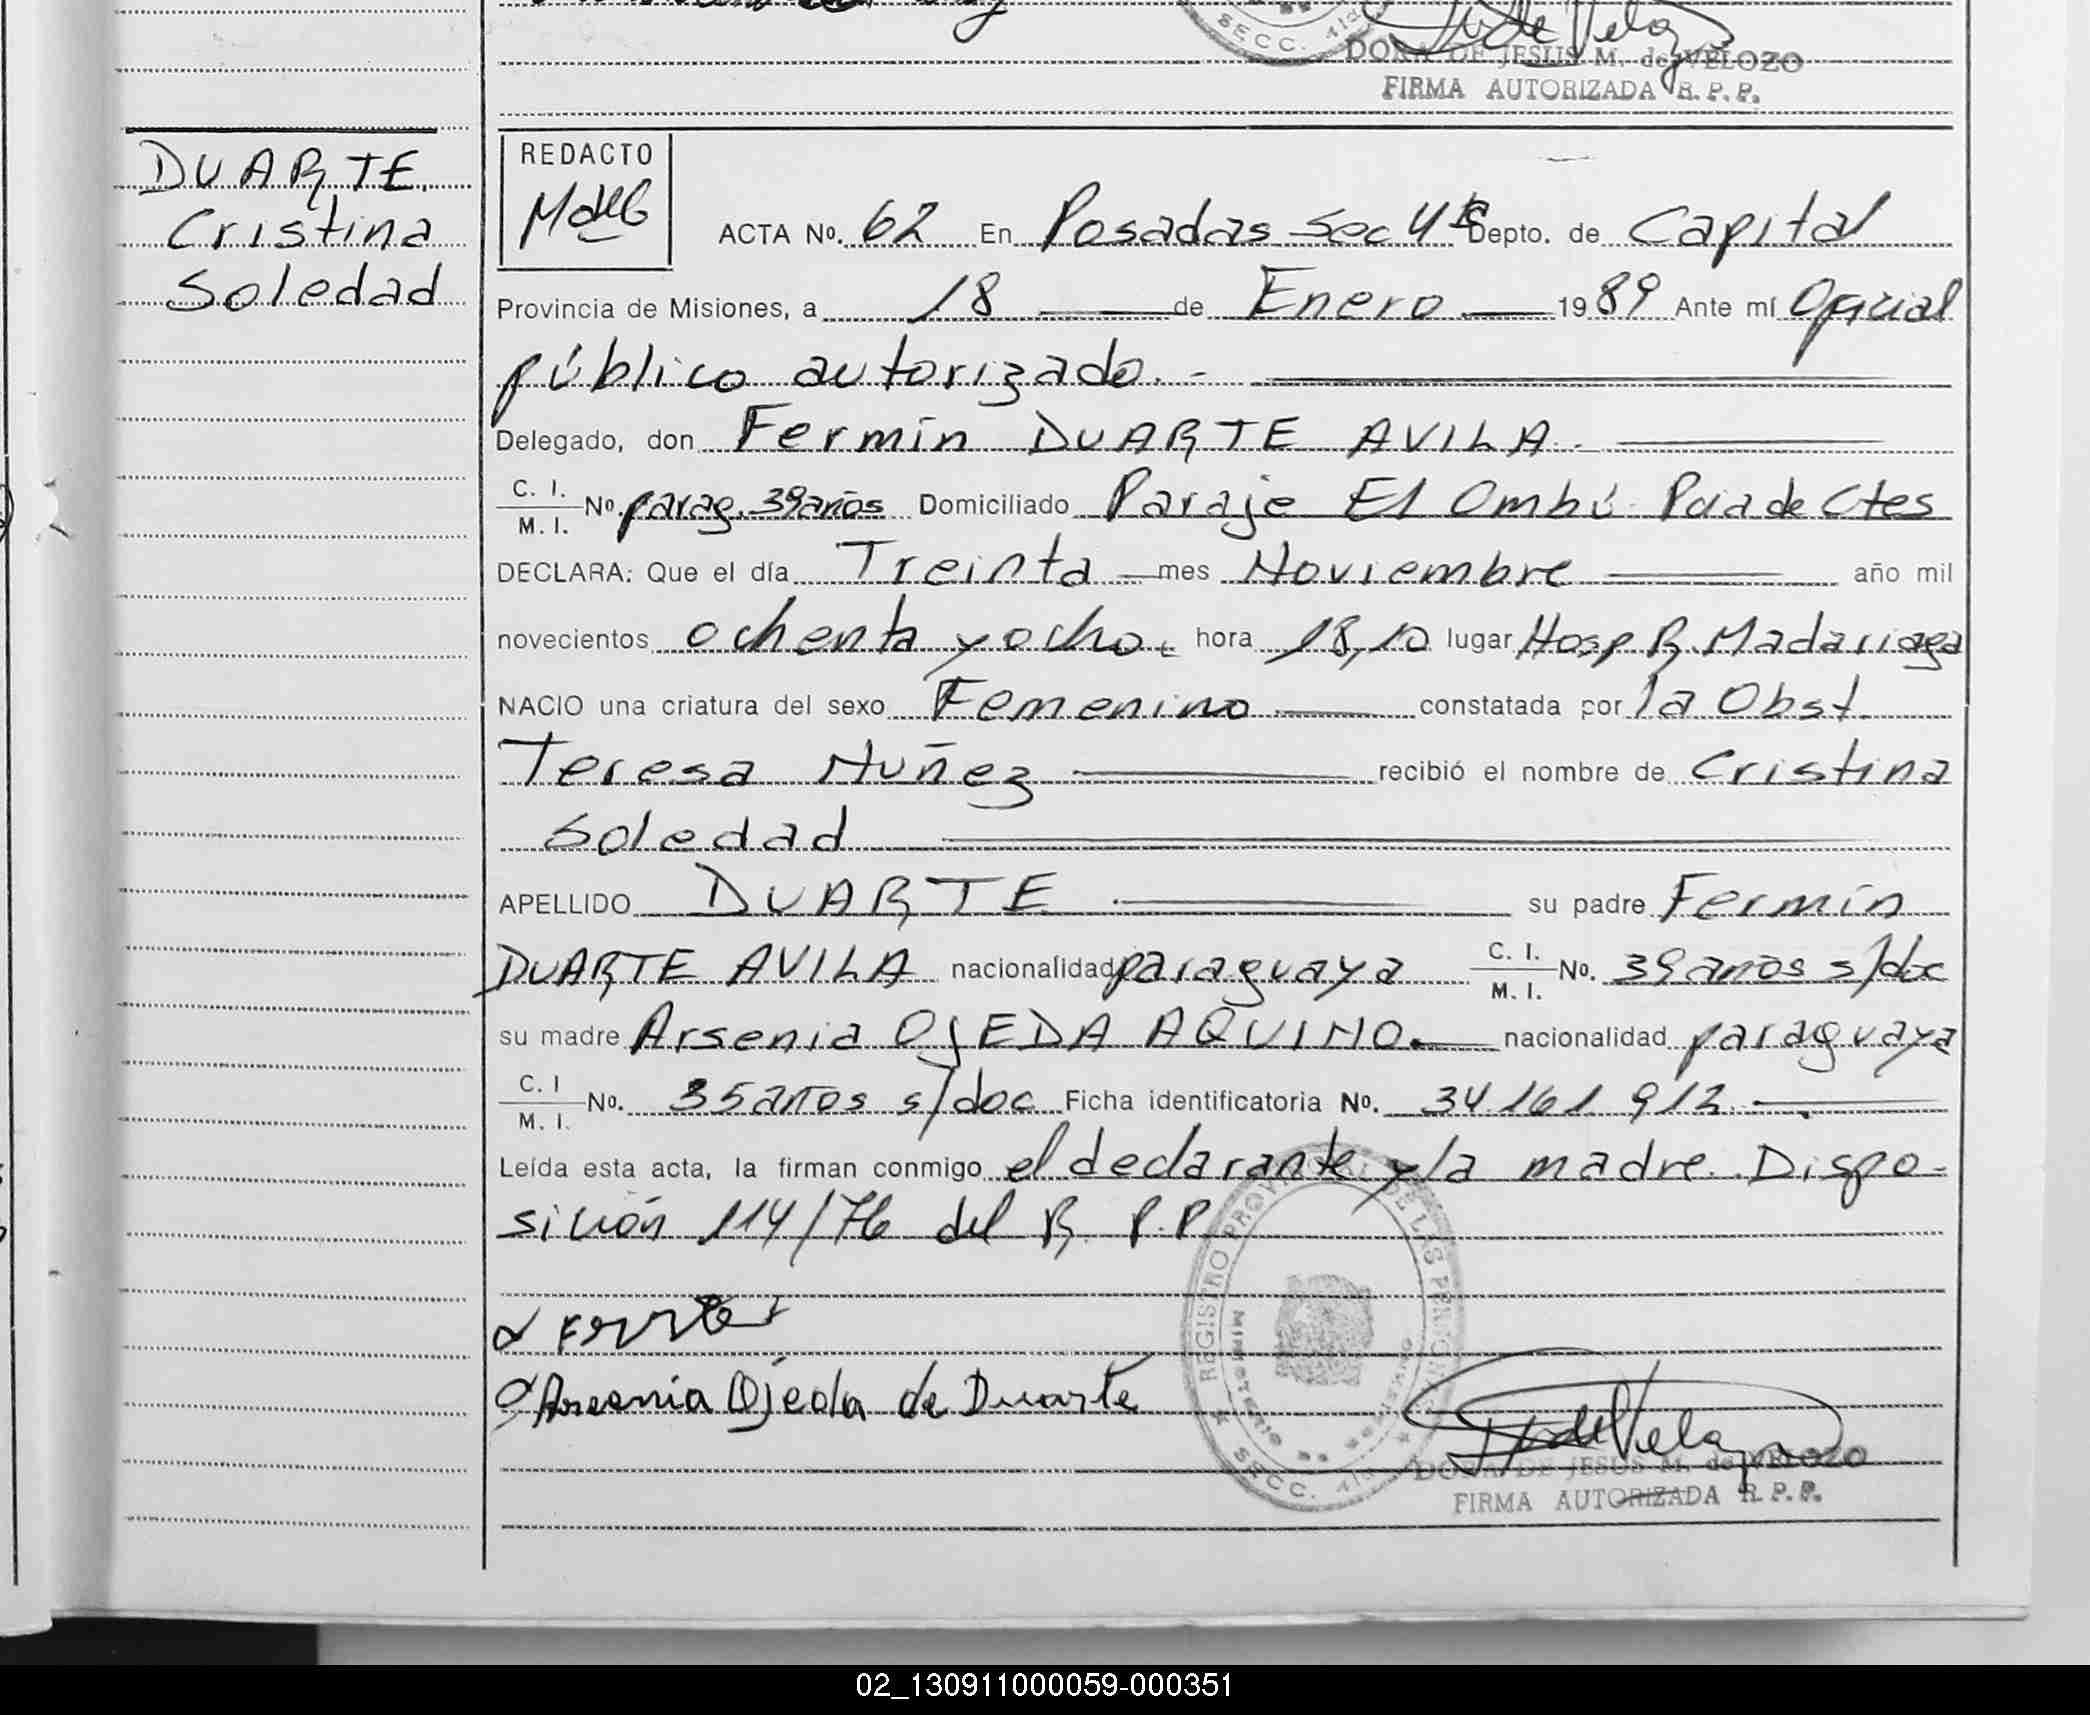 SECC. 4ta
DORA DE JESUS M. de VELOZO
FIRMA AUTORIZADA R. P. P.
DUARTE
Cristina
Soledad
REDACTO
ACTA No. 62 En Posadas Sec 4ta Depto. de Capital
Provincia de Misiones, a 18 de Enero 1989 Ante mí Oficial
público autorizado. -
Delegado, don Fermín DUARTE AVILA. -
C. I. / M. I. No. parag. 39 años Domiciliado Paraje El Ombú Pcia de Ctes
DECLARA: Que el día Treinta mes Noviembre año mil
novecientos ochenta y ocho hora 18,10 lugar Hosp R. Madariaga
NACIO una criatura del sexo Femenino constatada por la Obst.
Teresa Nuñez recibió el nombre de Cristina
Soledad
APELLIDO DUARTE su padre Fermín
DUARTE AVILA nacionalidad paraguaya C. I. / M. I. No. 39 años s/doc
su madre Arsenia OJEDA AQUINO. nacionalidad paraguaya
C. I / M. I. No. 35 años s/doc Ficha identificatoria No. 34.161.912.
Leída esta acta, la firman conmigo el declarante y la madre. Dispo-
sición 114/76 del R. P. P
REGISTRO PROVINCIAL DE LAS PERSONAS
Arsenia Ojeda de Duarte
SECC. 4ta
DORA DE JESUS M. de VELOZO
FIRMA AUTORIZADA R. P. P.
02_130911000059-000351